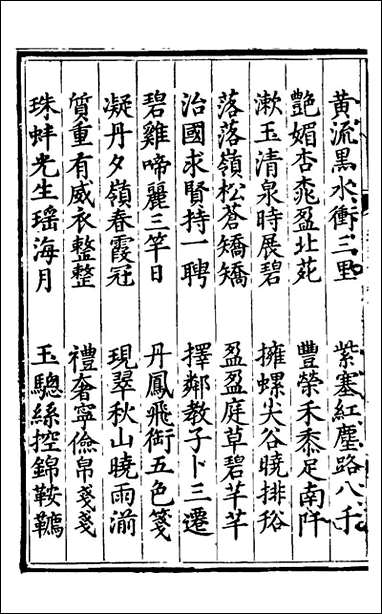 黃流黑水衝三里 紫塞紅塵路八千
艷媚杏桃盈北苑 豐榮禾黍足南阡
漱玉清泉時展碧 擁螺尖谷曉排
落落嶺松蒼矯矯 盈盈庭草碧芊芊
治國求賢持一聘 擇鄰教子卜三遷
碧雞啼麗三竿日 丹鳳飛銜五色箋
凝丹夕嶺春霞冠 現翠秋山曉雨湔
質重有威衣整整 禮奢寧儉帛戔戔
珠蚌光生瑶海月 玉驄絲控錦鞍韉